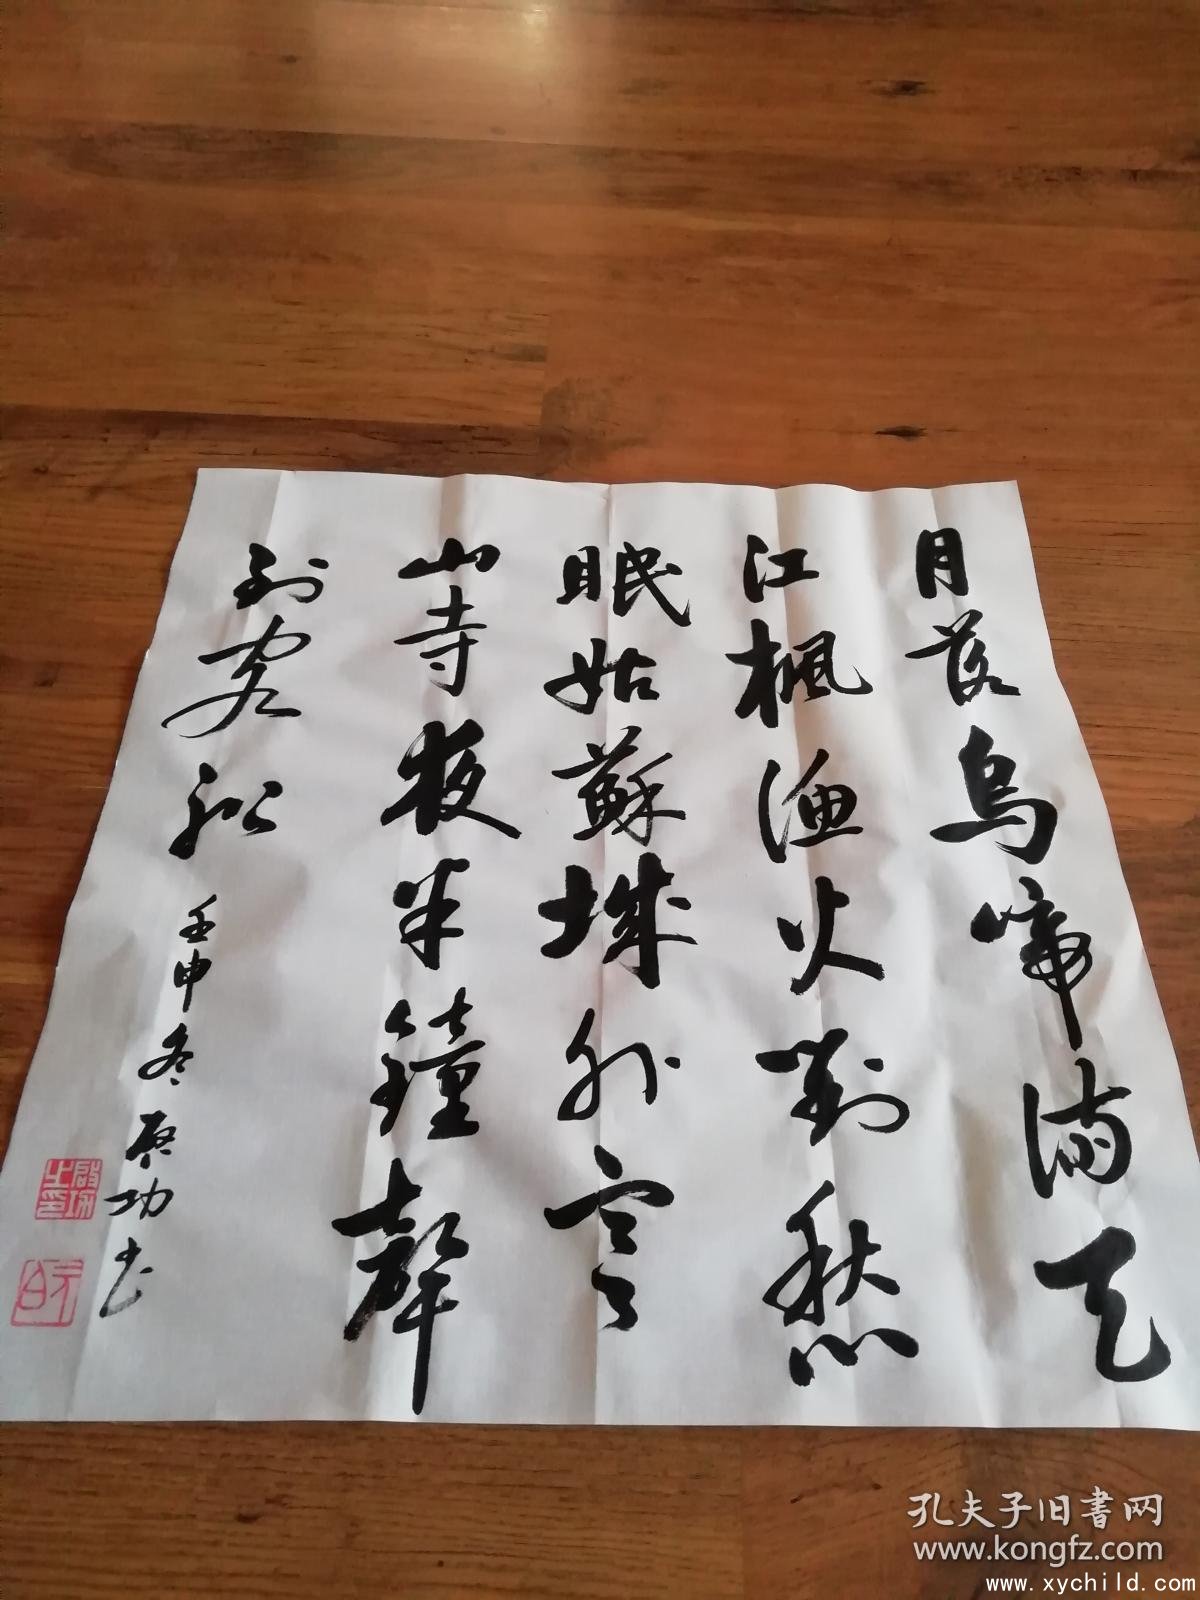 月落烏啼满天
江楓渔火對愁
眠姑蘇城外寒
山寺夜半鐘聲
到客船
壬申冬
启功书
啟功之印
元白
孔夫子旧書网
www.kongfz.com
www.xychild.com